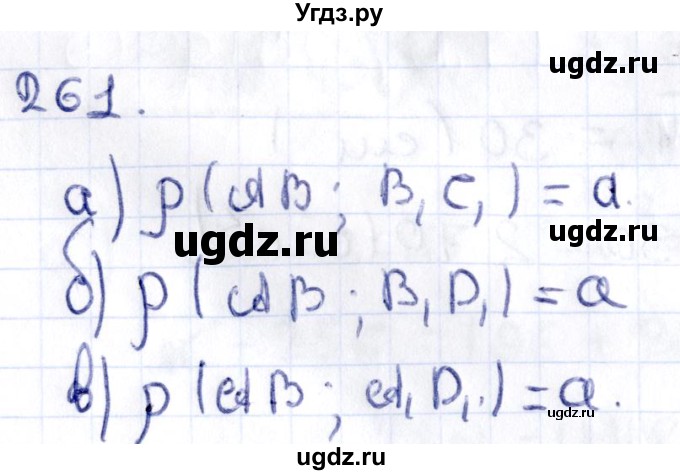 Угдз.ру
ugdz.ru
261.
а) ρ(AB; B₁C₁) = a.
ugdz.ru
ugdz.ru
б) ρ(AB; B₁D₁) = a
в) ρ(AB; A₁D₁) = a.
ugdz.ru
ugdz.ru
ugdz.ru